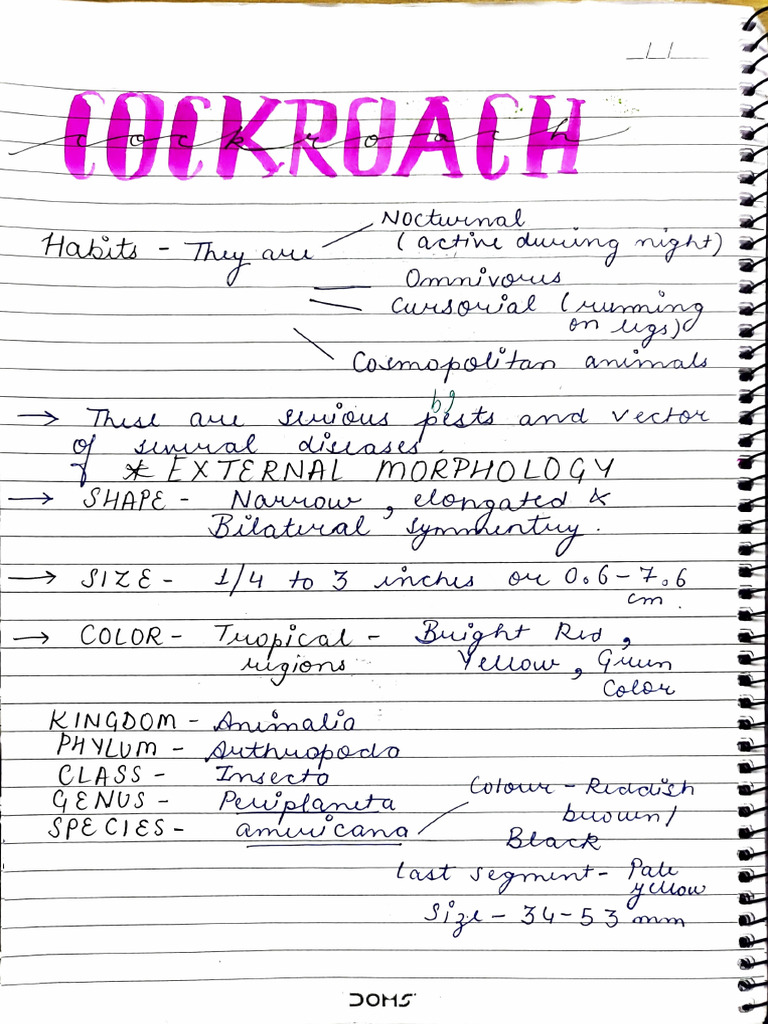 _ / / _
COCKROACH
cockroach
Nocturnal
Habits - They are (active during night)
Omnivorus
Cursorial (running
on legs)
Cosmopolitan animals
→ These are serious pests and vector
of several diseases.
* EXTERNAL MORPHOLOGY
→ SHAPE - Narrow, elongated &
Bilateral symmentry.
→ SIZE - 1/4 to 3 inches or 0.6-7.6
cm.
→ COLOR - Tropical - Bright Red,
regions Yellow, Green
Color
KINGDOM - Animalia
PHYLUM - Arthropoda
CLASS - Insecta
GENUS - Periplaneta Colour - Reddish
brown/
SPECIES - americana Black
last segment - Pale
yellow
Size - 34-53 mm
DOMS